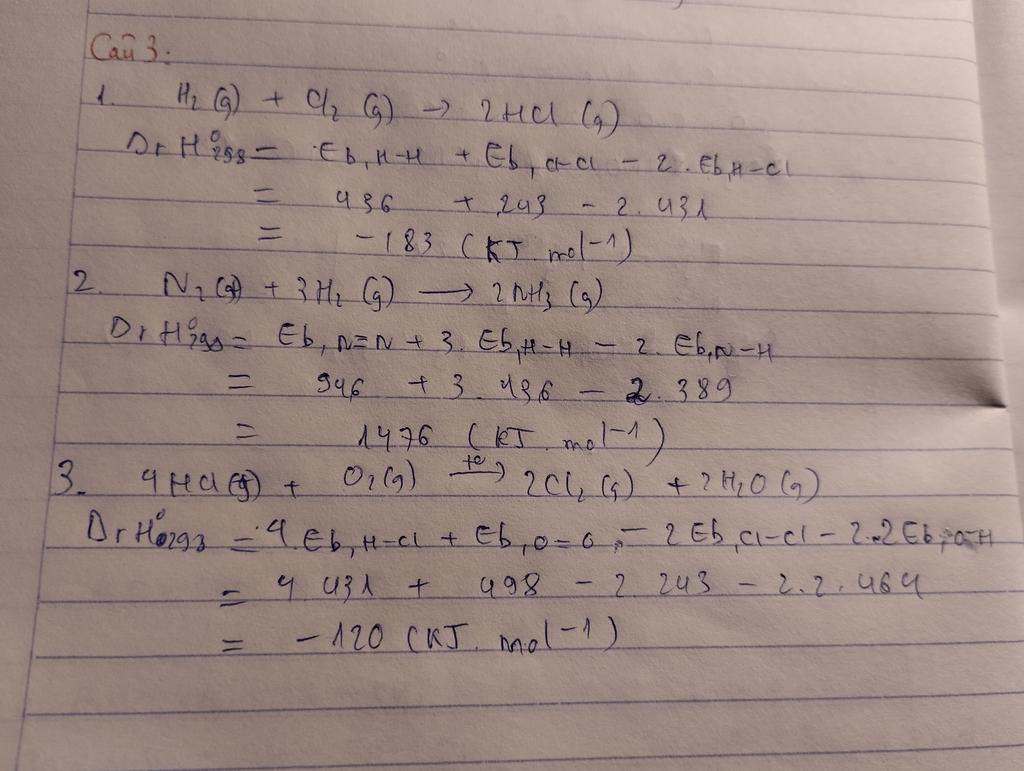 Câu 3:
1. H2(g) + Cl2 (g) → 2HCl (g)
DrH°298 = Eb, H-H + Eb, Cl-Cl - 2. Eb,H-Cl
= 436 + 243 - 2. 431
= -183 (KJ. mol-1)
2. N2(g) + 3H2 (g) → 2NH3 (g)
DrH°298 = Eb, N≡N + 3. Eb,H-H - 2. Eb,N-H
= 946 + 3. 436 - 2. 389
= 1476 (KJ. mol-1)
3. 4HCl(g) + O2(g) t° → 2Cl2 (g) + 2H2O (g)
DrH°293 = 4. Eb, H-Cl + Eb, O=O - 2Eb, Cl-Cl - 2.2Eb,O-H
= 4 431 + 498 - 2 243 - 2.2.464
= -120 (KJ. mol-1)